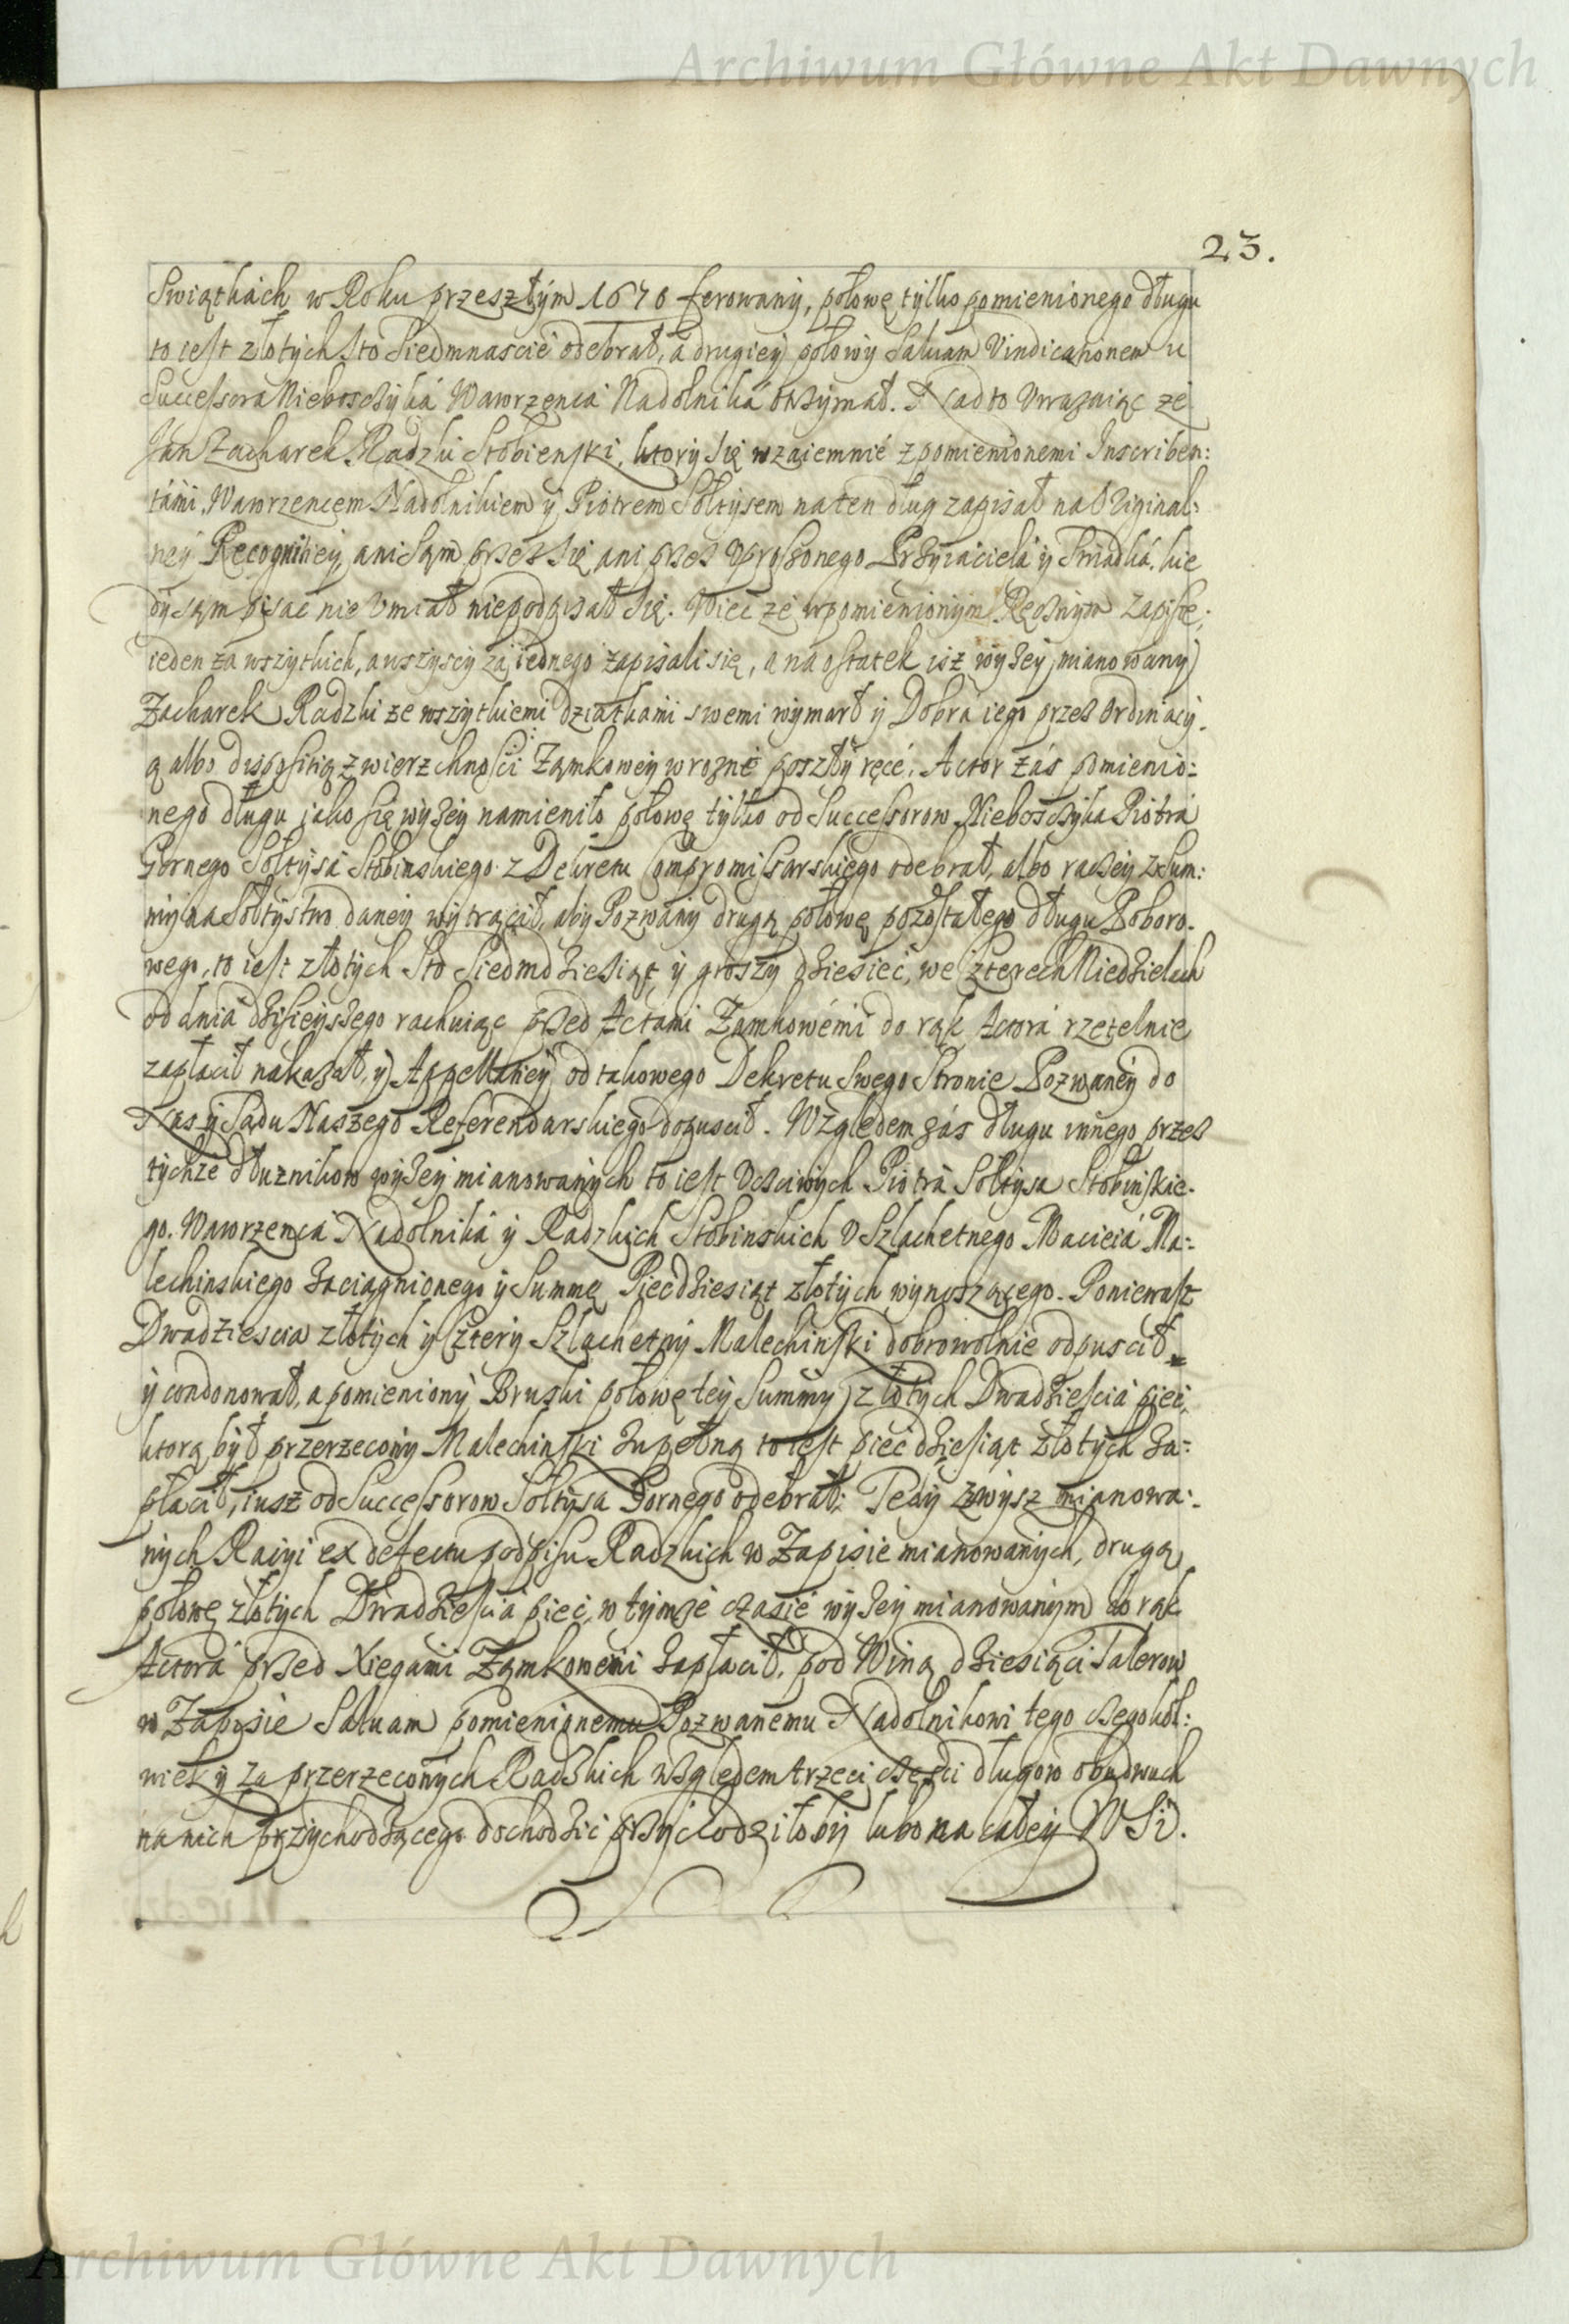 Archiwum Główne Akt Dawnych
23.
Swiątkach w Roku przeszłym 1670 ferowany, połowę tylko pomienionego długu
to iest złotych Sto Siedmnascie odebrał, a drugiey połowy Saluam Vindicationem u
Successora Nieboszczyka Wawrzenca Nadolnika otrzymał. Nadto Uwazaiąc ze
Jan Zacharek Radzki Stobienski, ktory się wzaiemnie z pomienionemi Inscriben:
tami, Wawrzencem Nadolnikiem y Piotrem Sołtysem na ten dług zapisał na Original:
ney Recognitiey, ani sąm przez się ani przez Uproszonego Przyiaciela y Swiadka, kie
dy sąm pisac nie Umiał niepodpisał się. Wiec ze w pomienionym Ręcznym Zapisie,
ieden za wszytkich, a wszyscy za iednego zapisali się, a na ostatek isz wyzey mianowany
Zacharek Radzki ze wszytkiemi dziatkami swemi wymarł y Dobra iego przez Ordinacy.
ą albo dispositią zwierzchnosci Zamkowey w rozne poszły ręce. Actor zás pomienio:
nego długu jako się wyzey namieniło połowę tylko od Successorow Nieboszczyka Piotra
Gornego Sołtysa Stobinskiego z Dekretu Compromissarskiego odebrał, albo raczey z Sum:
my na Sołtystwo daney wytrącił, aby Pozwany drugą połowę pozostałego długu Poboro.
wego, to iest złotych Sto Siedmdziesiąt y groszy dziesieć, we czterech Niedzielach
od dnia dzisieyszego rachuiąc przed Actami Zamkowemi do rąk Actora rzetelnie
zapłacił nakazał, y Appellatiey od takowego Dekretu Swego Stronie Pozwaney do
Nas y Sądu Naszego Referendarskiego dopuscił. Względem zás długu innego przez
tychze dłuznikow wyzey mianowanych to iest Uczciwych Piotra Sołtysa Stobinskie.
go, Wawrzenca Nadolnika y Radzkich Stobinskich U Szlachetnego Macieia Ma:
lechinskiego Zaciągnionego y Summę Piecdziesiąt złotych wynoszącego. Poniewasz
Dwadziescia złotych y cztery Szlachetny Malechinski dobrowolnie odpuscił
y condonował, a pomieniony Bruski połowę tey Summy złotych Dwadziescia pieć,
ktorą był przerzeczony Malechinski zupełną to iest pieć dziesiąt złotych Za:
płacił, iusz od Successorow Sołtysa Gornego odebrał; Tedy z wysz mianowa:
nych Racyi ex defectu podpisu Radzkich w Zapisie mianowanych, drugą
połowę złotych Dwadziescia pieć, w tymze czasie wyzey mianowanym do rąk
Actora przed Xięgami Zamkowemi Zapłacił, pod Winą dziesiąci Talerow
w Zapisie Saluam pomienionemu Pozwanemu Nadolnikowi tego czegokol:
wiek y za przerzeczonych Radzkich względem trzeci częsci długow obudwuch
na nich przychodzącego dochodzić przychodziłoby lubo na całey WSi.
Archiwum Główne Akt Dawnych